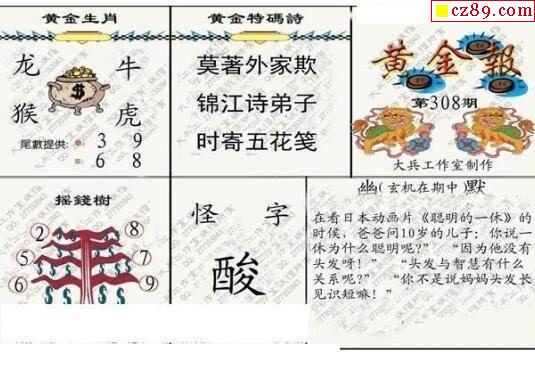 cz89.com
黄金生肖
龙 牛
猴 虎
$
尾數提供:單: 3 9
双: 6 8
黄金特碼詩
莫著外家欺
锦江诗弟子
时寄五花笺
黄金報
第308期
大兵工作室制作
摇錢樹
2 8
5 7
6 9
怪 字
酸
幽(玄机在期中 默
在看日本动画片《聪明的一休》的
时侯，爸爸问10岁的儿子；你说一
休为什么聪明呢?” “因为他没有
头发呀！” “头发与智慧有什么
关系呢?” “你不是说妈妈头发长
见识短嘛！”